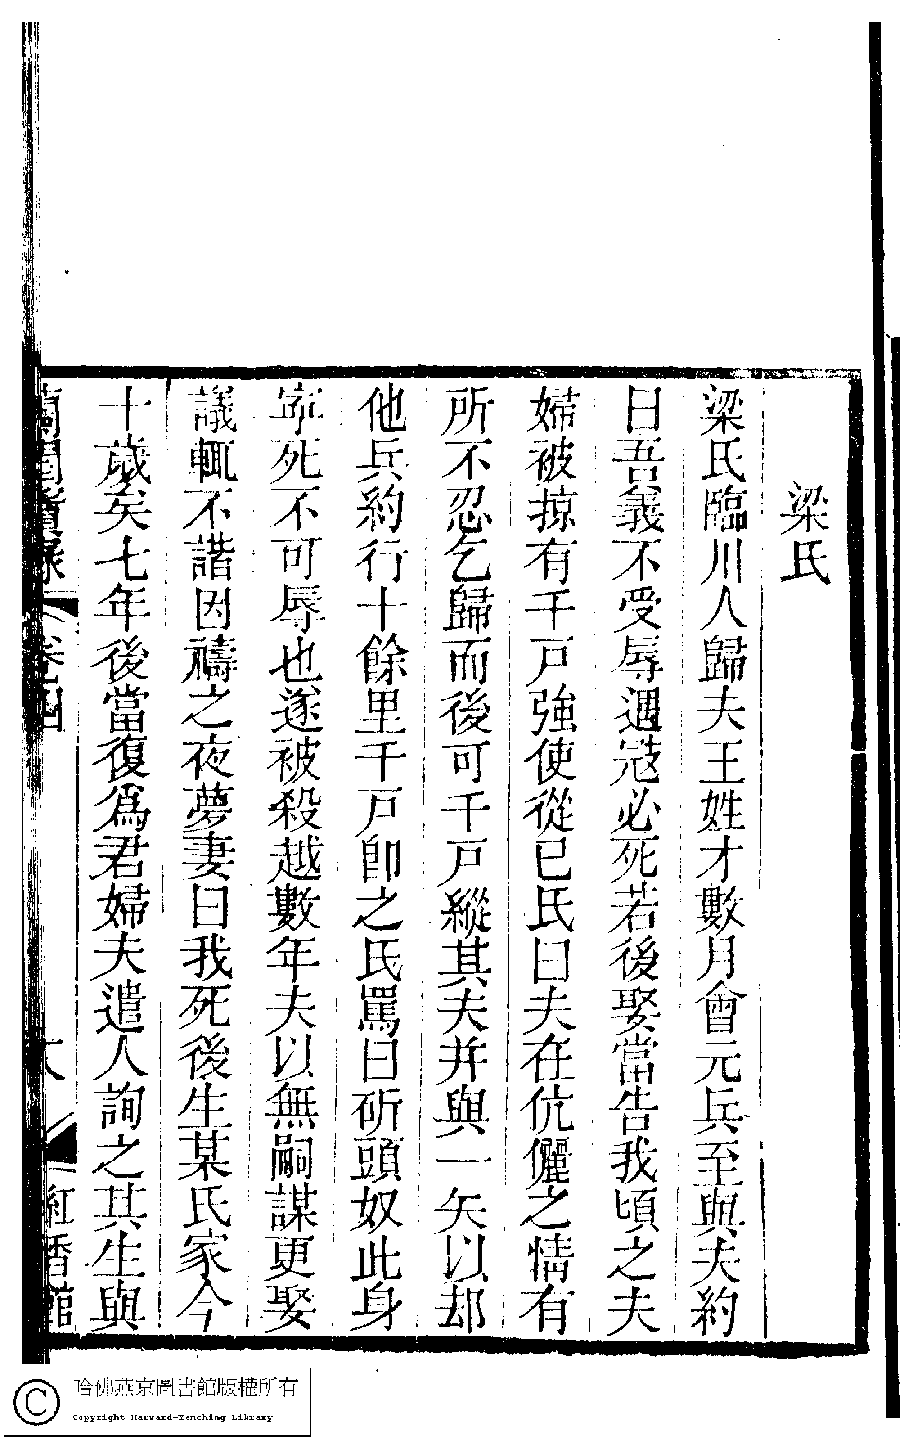 梁氏
梁氏臨川人歸夫王姓才數月會元兵至與夫約
曰吾義不受辱遇冦必死若後娶當告我頃之夫
婦被掠有千戸強使從已氏曰夫在伉儷之情有
所不忍乞歸而後可千戸縱其夫并與一矢以却
他兵約行十餘里千戸卽之氏罵曰斫頭奴此身
寕死不可辱也遂被殺越數年夫以無嗣謀更娶
議輒不諧因禱之夜夢妻曰我死後生某氏家今
十歲矣七年後當復爲君婦夫遣人詢之其生與
蘭閨寶錄 卷四 大 紅香館
哈佛燕京圖書館版權所有
Copyright Harvard-Yenching Library